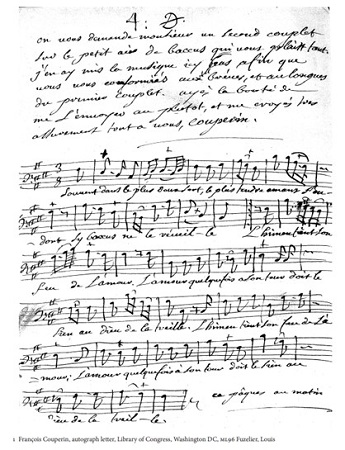 4: D.
on vous demande monsieur un second couplet
sur le petit air de baccus qui vous plaist tant.
J'en ay mis la musique icy bas afin que
vous vous conformiés aux brèves, et aux longues
du premier couplet. ayés la bonté de
me L'envoyer au plutot, et me croyés
tout a vous, couperin.
Souvent dans le plus doux sort, le plus tendre amant s'en
dort Sy baccus ne le reveil-le L'himen éteint son
feu de L'amour, L'amour quelquefois a son tour doit le
bien au dieu de la treille. L'himen éteint son feu de L'a
mour, L'amour quelquefois a son tour doit le bien au
dieu de la treil-le. ce pâques au matin
1 François Couperin, autograph letter, Library of Congress, Washington DC, ML96 Fuzelier, Louis